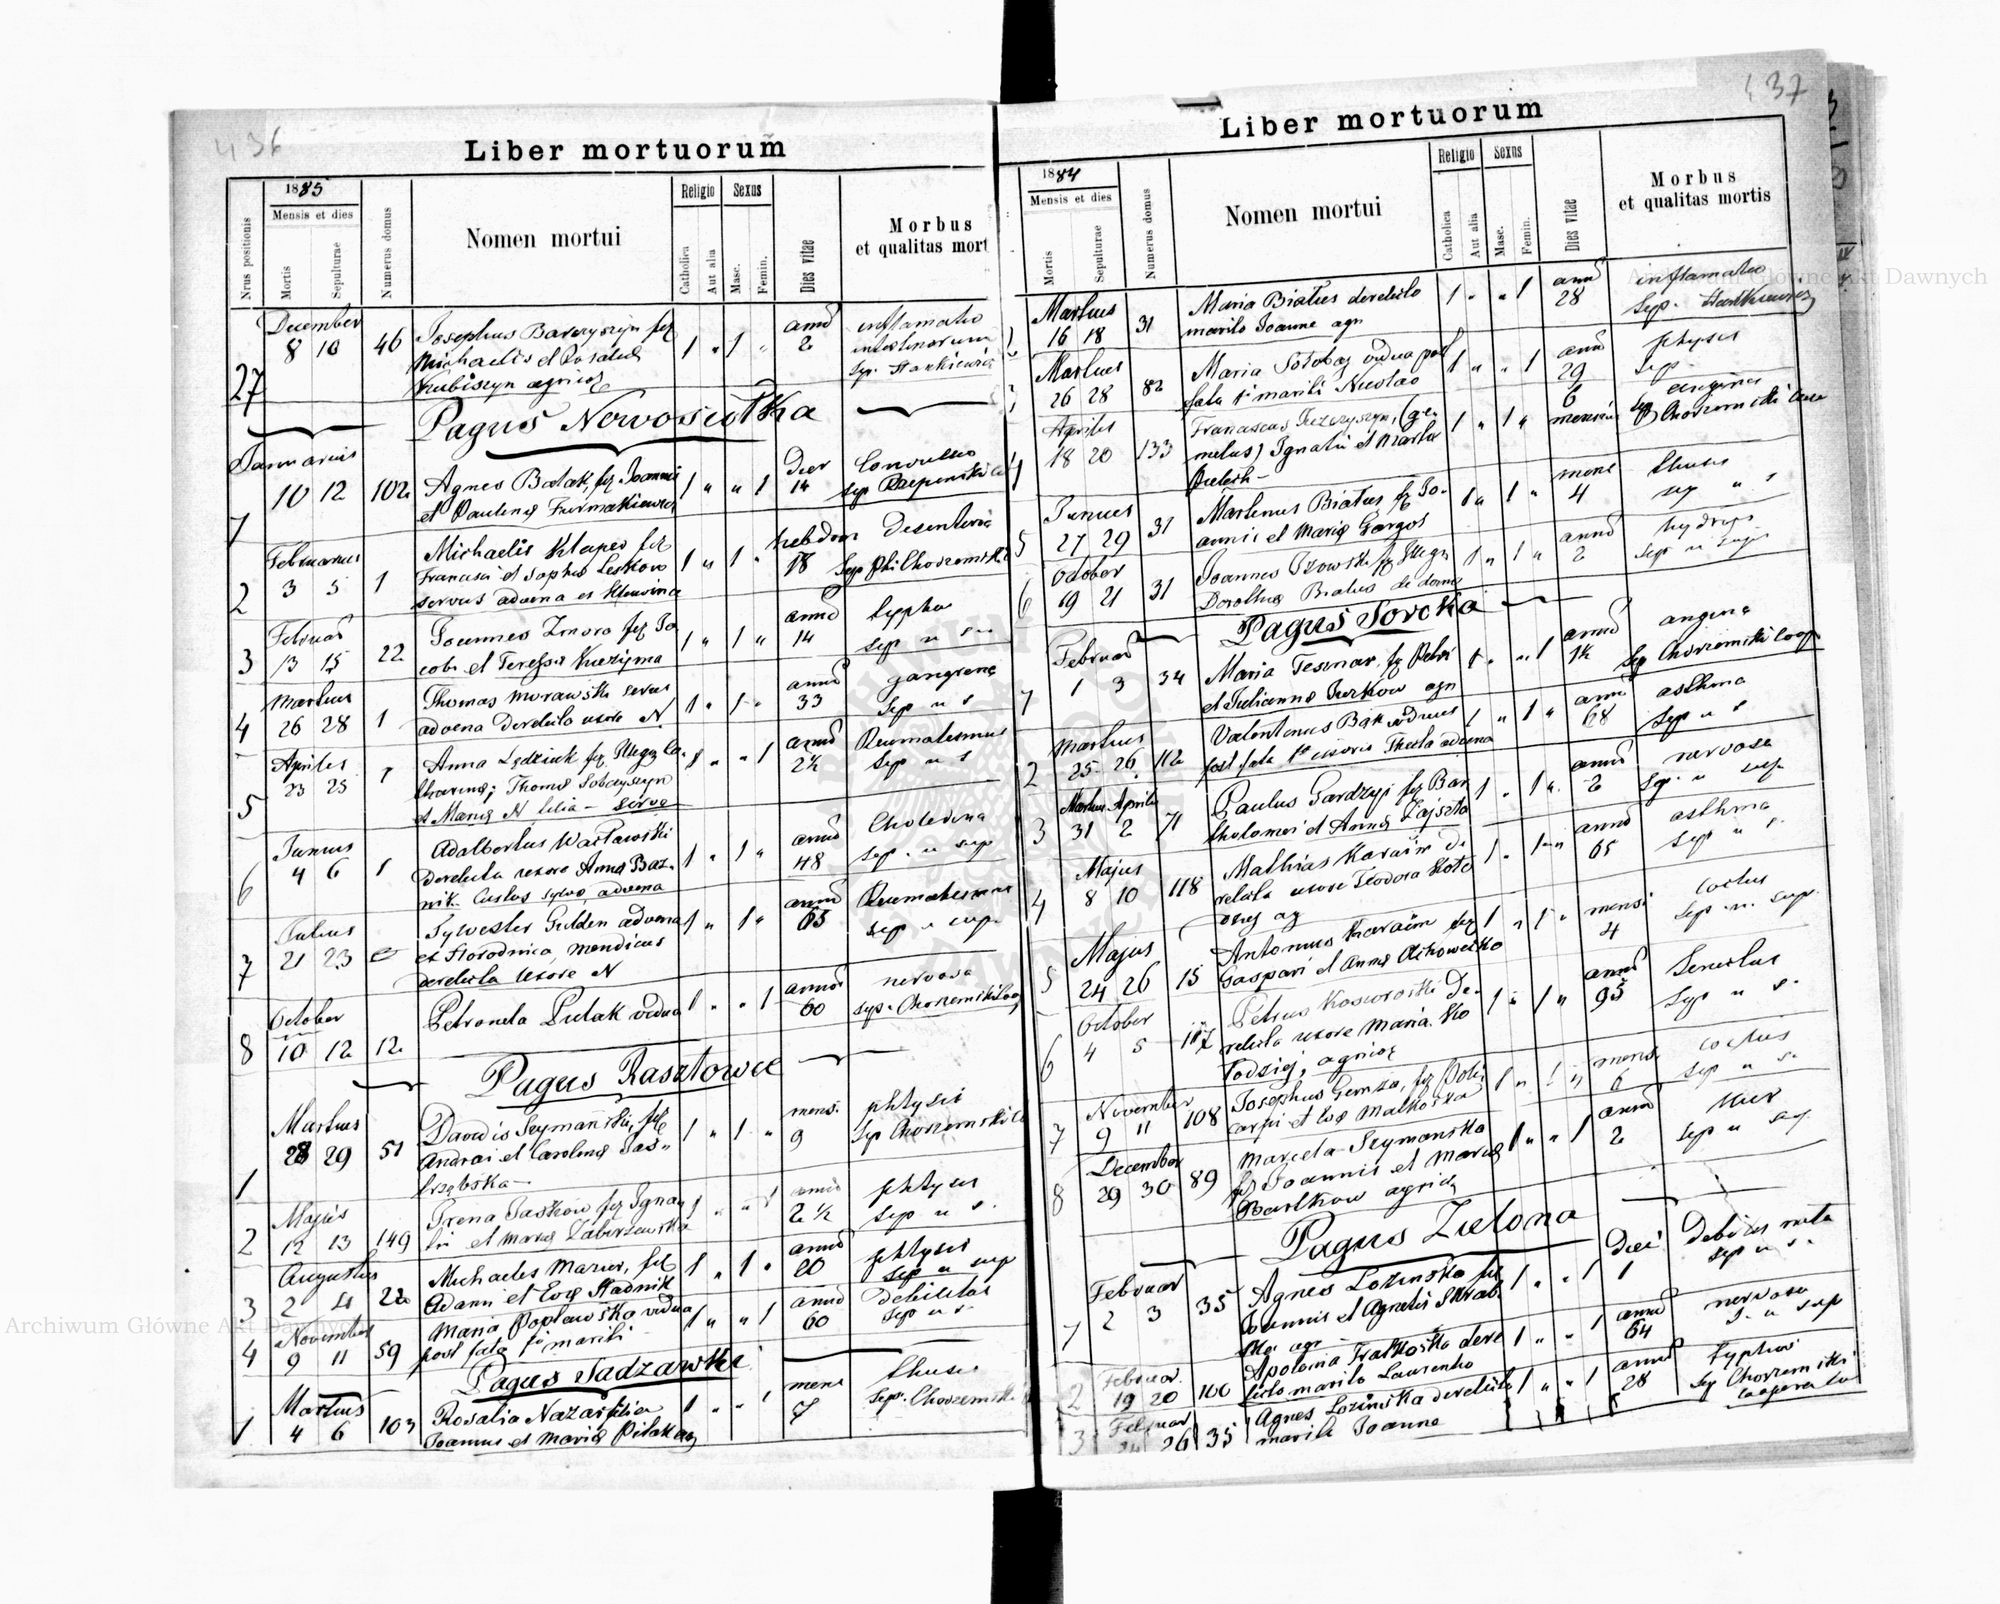 436
Liber mortuorum
1885
Mensis et dies
Nrus positionis
Mortis
Sepulturae
Numerus domus
Nomen mortui
Religio
Catholica
Aut alia
Sexus
Masc.
Femin.
Dies vitae
Morbus
et qualitas mort
December
27 8 10 46 Josephus Barczyszyn fil
Michaelis et Rosaliae
Kubiszyn agricol
1 " 1 " anni 2
inflamatio
intestinorum
Sep. Stankiewicz
Pagus Nowosiółka
Januarius
1 10 12 102 Agnes Balak, fil Joannis
et Paulina Furmankiewicz
1 " " 1 dier 14
Convulsio
Februarius
2 3 5 1 Michaelis
Francisci et Sophia
servus advena
1 " 1 " hebdom 18
Desenteria
Sep Chorzemski
Februar
3 13 15 22 Joannes Zmora fil Ja
cobi et Teressa Kuczyma
1 " 1 " anno 14
typhus
Sep u s
Martius
4 26 28 1 Thomas Morawski servus
advena derelicta uxore N
1 " 1 " anno 33
gangrena
Sep u s
Aprilis
5 23 25 Anna fil illeg Ca
tharina; Thoma Sobczyszyn
et Maria N filia
1 " " 1 anno 2½
Reumatismus
Sep u s
Junius
6 4 6 1 Adalbertus Wacławski
derelicta uxore Anna Baz
nik. Custos sylvae, advena
1 " 1 " anno 48
Sep. u sup
Julius
7 21 23 Sylvester Gulden advena
ex Horodnica, mendicus
derelicta uxore N
1 " 1 " anno 65
Reumatismus
Sep. u sup.
October
8 10 12 12 Petronela Pulak vidua
1 " " 1 annos 60
nervosa
Sep. Chorzemski Coop
Pagus Rasztowce
Martius
1 28 29 51 Davidis Szymański, fil
Andrai et Carolina Jas
trzębska
1 " 1 " mens. 9
phtysis
Sep Chorzemski
Majus
2 12 13 149 Irena Jaskow fil Igna
tii et Maria Zaborzewska
1 " " 1 anno 2½
phtysis
Sep u s.
Augustus
3 2 4 22 Michaeles Mazur, fil
Adami et Eva Hadnik
1 " 1 " anno 20
phtysis
Sep u sup
November
4 9 11 59 Maria Popławska vidua
post fata 1i mariti
1 " " 1 anno 60
debilitas
Sep u s.
Pagus Sadzawki
Martius
1 4 6 103 Rosalia Nazar filia
Joannis et Maria Pilak ag
1 " " 1 mens 7
thusis
Sep. Chorzemski
437
Liber mortuorum
1884
Mensis et dies
Mortis
Sepulturae
Numerus domus
Nomen mortui
Religio
Catholica
Aut alia
Sexus
Masc.
Femin.
Dies vitae
Morbus
et qualitas mortis
Martius
16 18 31 Maria Białus derelicto
marito Joanne agr
1 " " 1 anno 28
inflamatio
Sep. Stankiewicz
Martius
26 28 82 Maria vidua post
fata 1i mariti Nicolao
1 " " 1 anno 29
physis
Sep
Aprilis
4 18 20 133 Franciscus (ge-
melus) Ignatii et Maria
1 " 1 " 6 mensium
angina
Sep Chorzemski
Junius
5 27 29 31 Martinus Białus fil Jo-
annis et Maria Gorgos
1 " 1 " mens 4
thusis
Sep " s
October
6 19 21 31 Joannes fil illeg
Dorothea Białus de domo
1 " 1 " anno 2
hydrops
Sep u sup
Pagus Sorocka
Februar
1 1 3 34 Maria Tesznar, fil Petri
et Julianna Jurkow agr
1 " " 1 anno 1½
angina
Sep Chorzemski Coop
Martius
2 25 26 112 Valentinus Bąk viduus
post fata 1ae uxoris Thecla advena
1 " 1 " anno 68
asthma
Sep u s
Martius Aprilis
3 31 2 71 Paulus Gardzyj fil Bar
tholomei et Anna Zajszła
1 " 1 " anno 2
nervosa
Sep. u sup
Majus
4 8 10 118 Mathias Karaim de
relicta uxore Teodora Koło
dziej ag
1 " 1 " anno 65
asthma
Sep u s.
Majus
5 24 26 15 Antonius Karaim fil
Gaspari et Anna
1 " 1 " mensi 4
coctus
Sep. u. sup.
October
6 4 5 117 Petrus Kosworoski De-
relicta uxore Maria Ko
łodziej, agricol
1 " 1 " anno 95
Senectus
Sep u s.
November
7 9 11 108 Josephus Gemza, fil Poli
carpi et Eva Małkoska
1 " 1 " mens 6
coctus
Sep u s.
December
8 29 30 89 Marcela Szymanska
fil Joannis et Maria
Bartkow agricol
1 " " 1 anno 2
Sep u sup
Pagus Zielona
Februar
1 2 3 35 Agnes Lozinska fil
Joannis et Agnetis Skrab
ska agr
1 " " 1 diei 1
Debilis nata
Sep u s.
Februar.
2 19 20 100 Apolonia Fratkoska dere
licto marito Laurentio
1 " " 1 anno 64
nervosa
S. u sup
Februar
3 24 26 35 Agnes Lozinska derelicto
marito Joanne
1 " " 1 anno 28
typhus
Sep Chorzemski
Cooperator
Archiwum Główne Akt Dawnych
Archiwum Główne Akt Dawnych